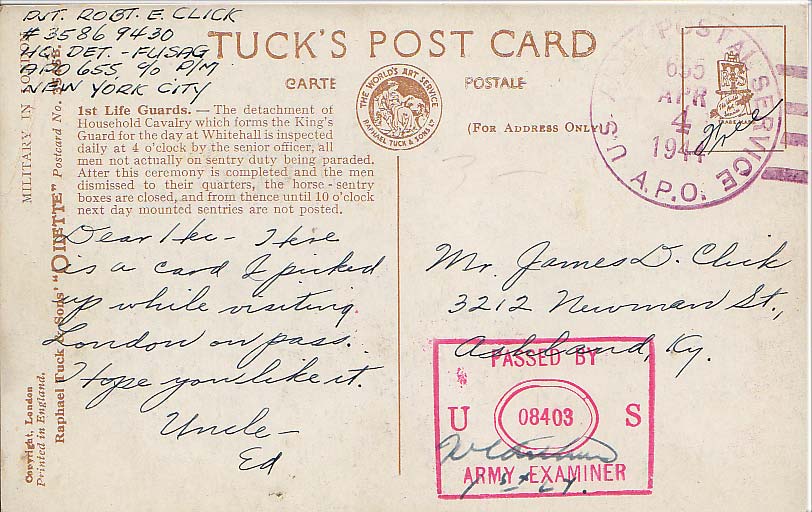 PVT. ROBT. E. CLICK
# 35869430
HQ. DET. - FUSAG
APO 655, c/o P/M
NEW YORK CITY
TUCK'S POST CARD
CARTE POSTALE
THE WORLD'S ART SERVICE
RAPHAEL TUCK & SONS LTD
(FOR ADDRESS ONLY)
1st Life Guards. — The detachment of
Household Cavalry which forms the King's
Guard for the day at Whitehall is inspected
daily at 4 o'clock by the senior officer, all
men not actually on sentry duty being paraded.
After this ceremony is completed and the men
dismissed to their quarters, the horse-sentry
boxes are closed, and from thence until 10 o'clock
next day mounted sentries are not posted.
MILITARY IN LONDON
Raphael Tuck & Sons' "OILETTE" Postcard No.
Copyright, London
Printed in England.
POSTAL SERVICE
655
APR
4
1944
U.S. A.P.O.
TRADE MARK
free
Dear Hec - Here
is a card I picked
up while visiting
London on pass.
Hope you like it.
Uncle -
Ed
Mr. James D. Click
3212 Newman St.,
Ashland, Ky.
PASSED BY
U 08403 S
ARMY EXAMINER
1st Lt.